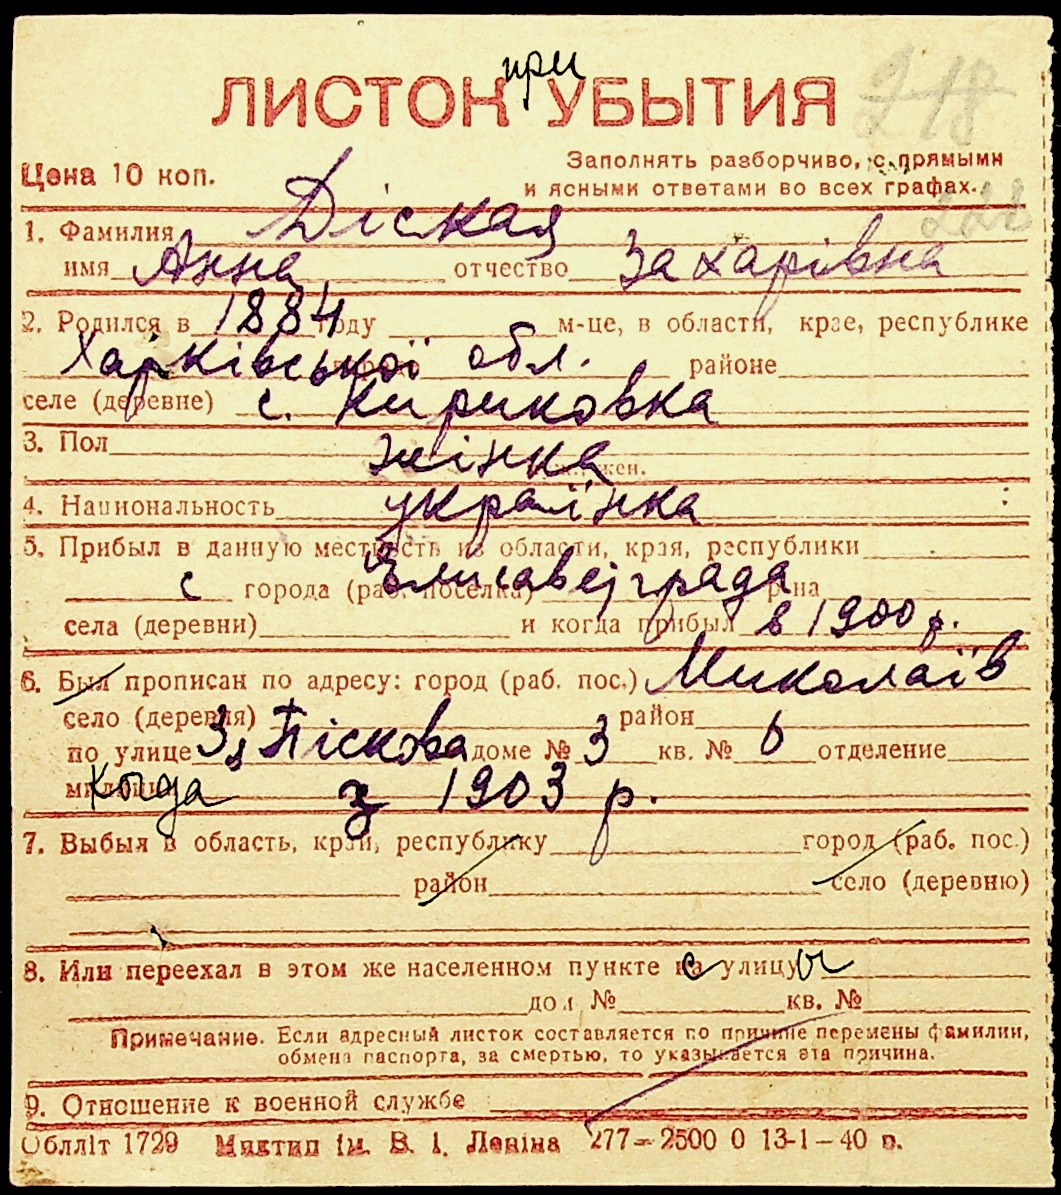 при
ЛИСТОК УБЫТИЯ 218
Цена 10 коп. Заполнять разборчиво, с прямыми
и ясными ответами во всех графах.
228
1. Фамилия Діская
имя Анна отчество Захарівна
2. Родился в 1884 году м-це, в области, крае, республике
Харківської обл. районе
селе (деревне) с. Кириковка
3. Пол жінка жен.
4. Национальность українка
5. Прибыл в данную местность из области, края, республики
с города (раб. поселка) Елисаветграда
села (деревни) и когда прибыл в 1900 р.
6. Был прописан по адресу: город (раб. пос.) Миколаїв
село (деревня) район
по улице 3я Піскова доме № 3 кв. № 6 отделение
милиции когда з 1903 р.
7. Выбыл в область, край, республику город (раб. пос.)
район село (деревню)
8. Или переехал в этом же населенном пункте с улицы
дом № кв. №
Примечание. Если адресный листок составляется по причине перемены фамилии,
обмена паспорта, за смертью, то указывается эта причина.
9. Отношение к военной службе
Облліт 1729 Миктип ім. В. І. Леніна 277—2500 0 13-1—40 р.